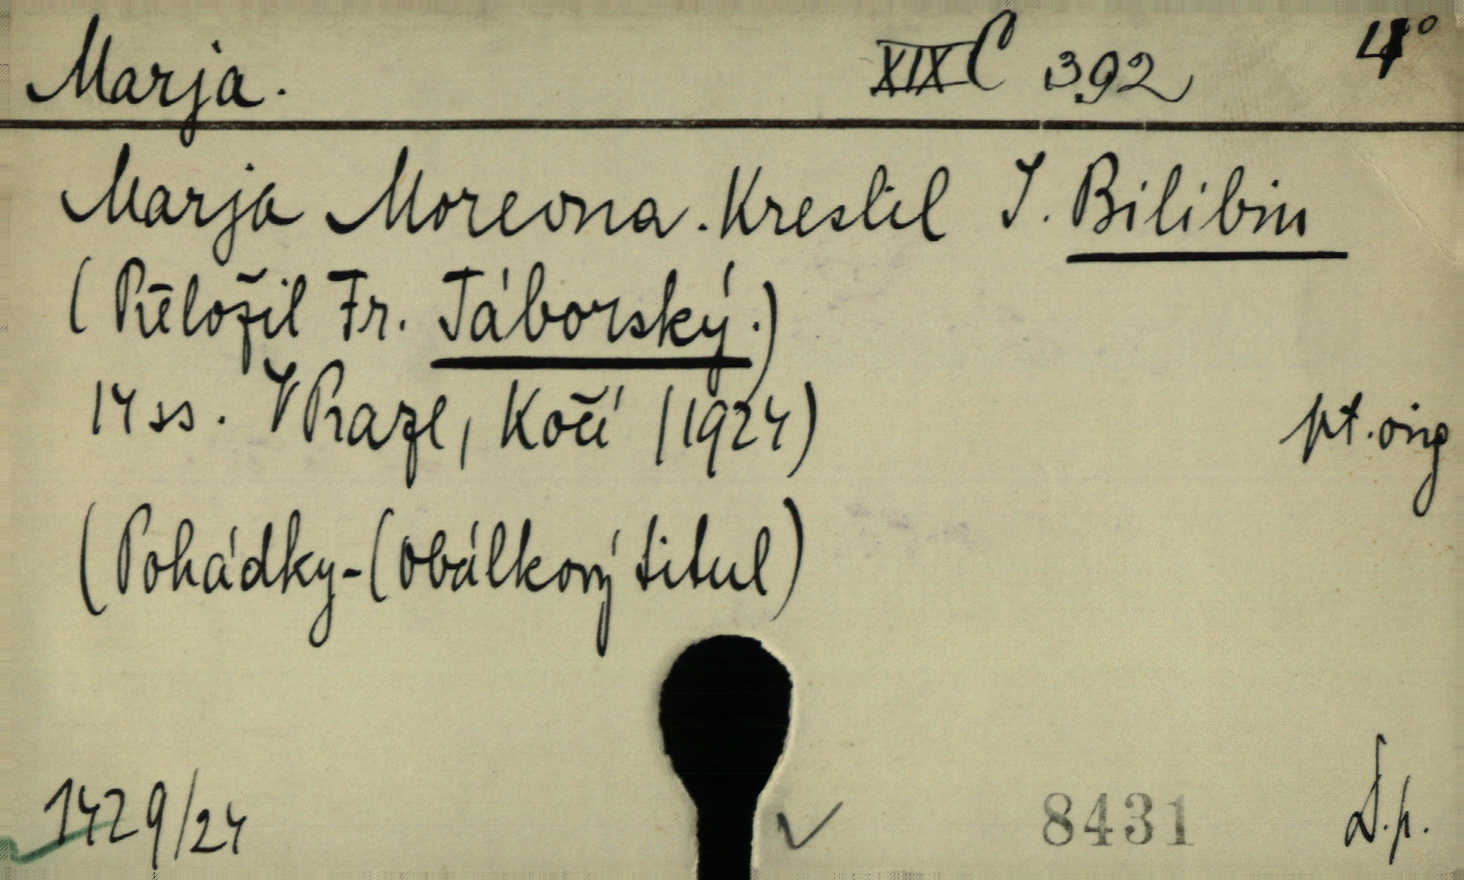 Marja. XIX C 392 4°
Marja Morevna. Kreslil I. Bilibin
(Přeložil Fr. Táborský.)
14 ss. V Praze, Kočí (1924) pt. orig
(Pohádky-(obálkový titul)
1429/24 8431 D.p.